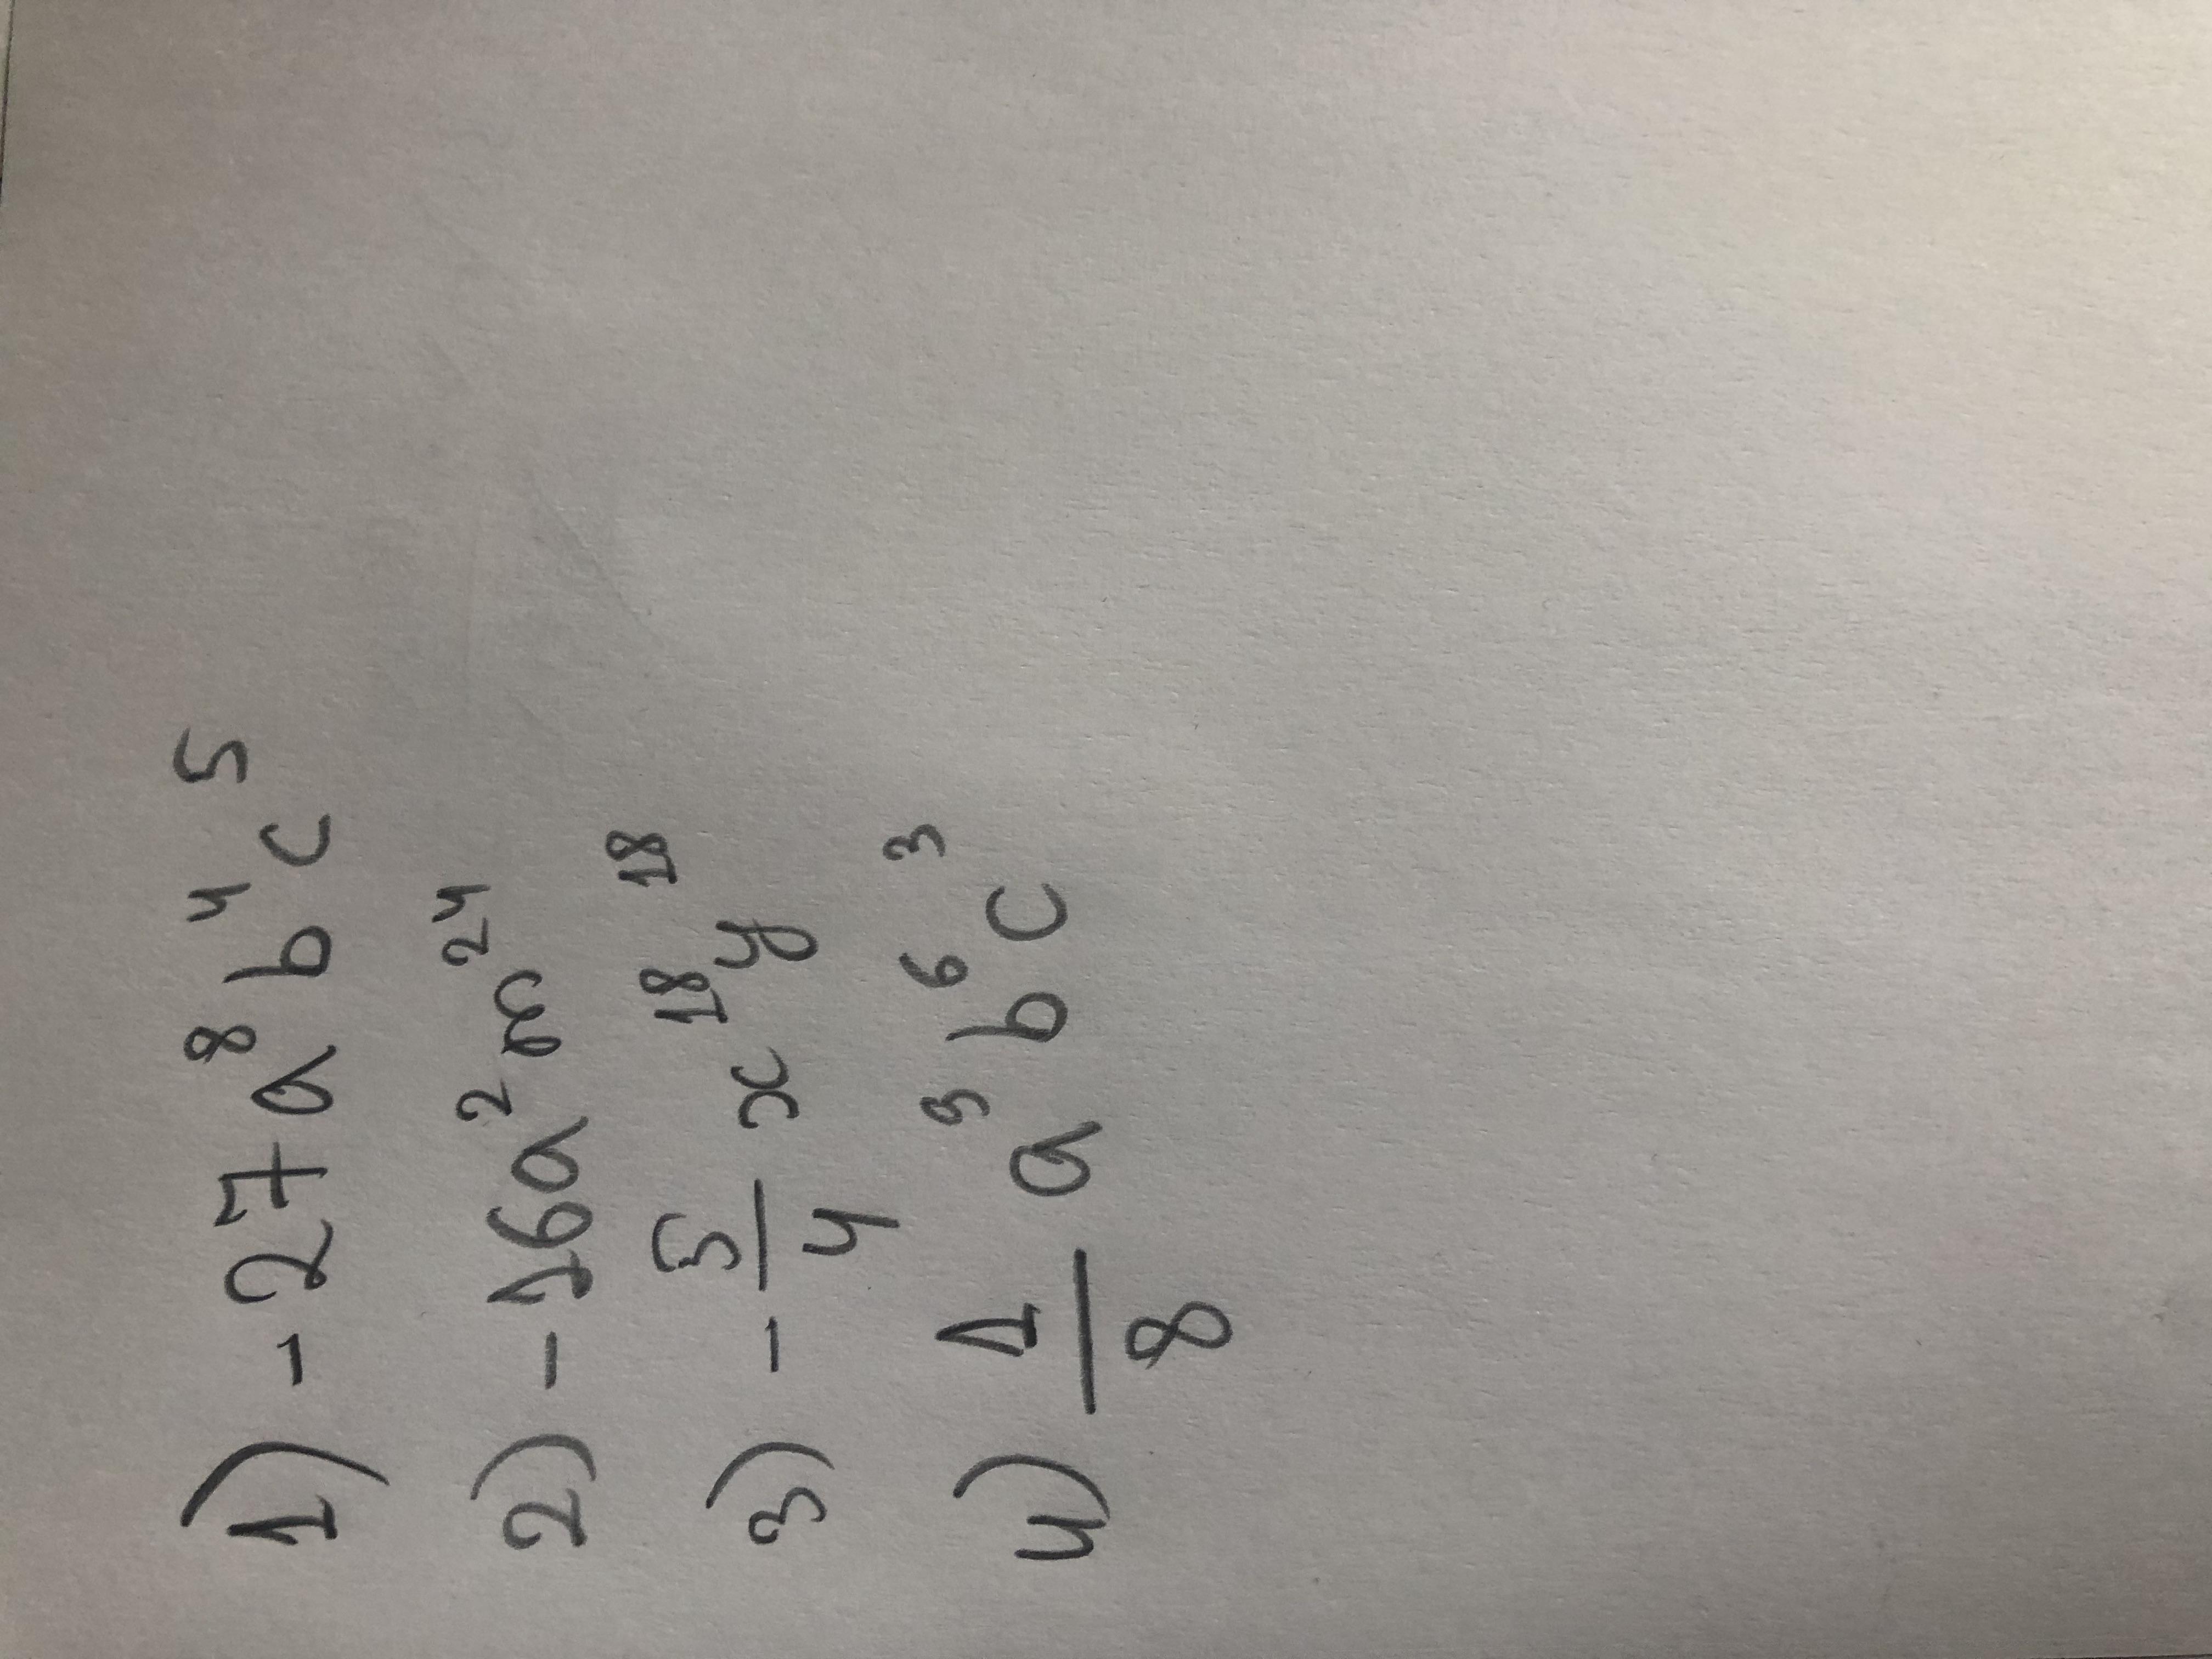 1) -27a⁸b⁴c⁵
2) -16a²m²⁴
3) -5/4 x¹⁸y¹⁸
4) 1/8 a³b⁶c³